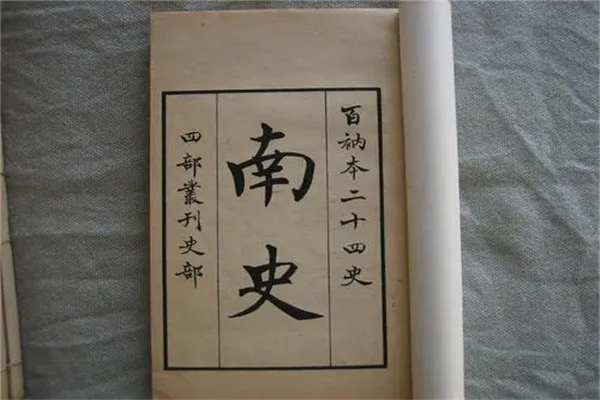 百衲本二十四史
南史
四部叢刊史部